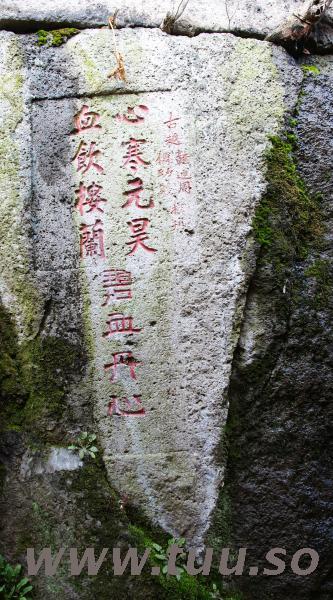 古越
心寒元昊
血飲樓蘭
碧血丹心
www.tuu.so